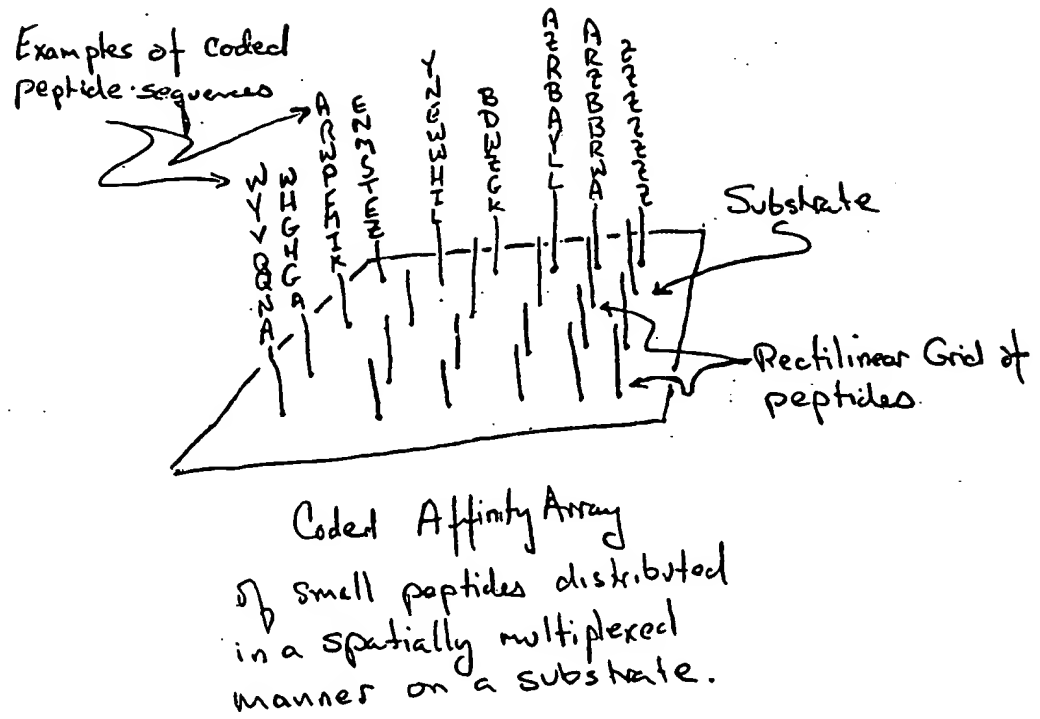 Examples of coded
peptide sequences
WYVQQNA
WHGHGA
ENMSTEZ
YNEWWHIL
BDWEGK
AZRBAYLL
ARZBBRWA
ZZZZZZZ
Substrate
Rectilinear Grid of
peptides
Coded Affinity Array
of small peptides distributed
in a spatially multiplexed
manner on a substrate.